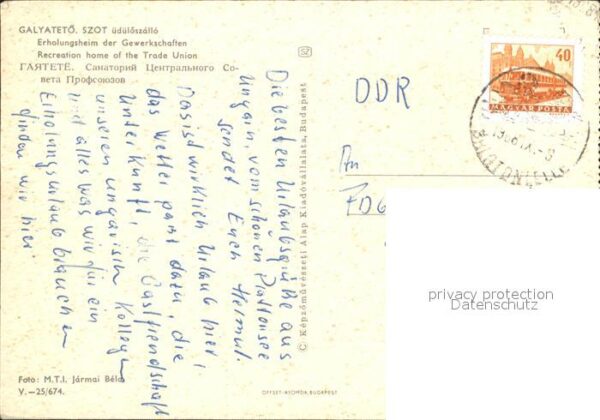 GALYATETŐ. SZOT üdülőszálló
Erholungsheim der Gewerkschaften
Recreation home of the Trade Union
ГАЯТЕТЕ. Санаторий Центрального Со-
вета Профсоюзов
Die besten Urlaubsgrüße aus
Ungarn, vom schönen Plattensee
sendet Euch Helmut.
Das ist wirklich Urlaub hier,
das Wetter passt dazu, die
Unterkunft, die Gastfreundschaft
unseren ungarischen Kollegen
und alles was wir für ein
Erholungsurlaub brauchen
finden wir hier.
© Képzőművészeti Alap Kiadóvállalata, Budapest
SZ
DDR
An
FDG
40
MAGYAR POSTA
BALATONLELLE
privacy protection
Datenschutz
Foto: M.T.I. Jármai Béla
V.—25/674.
OFFSET-NYOMDA, BUDAPEST